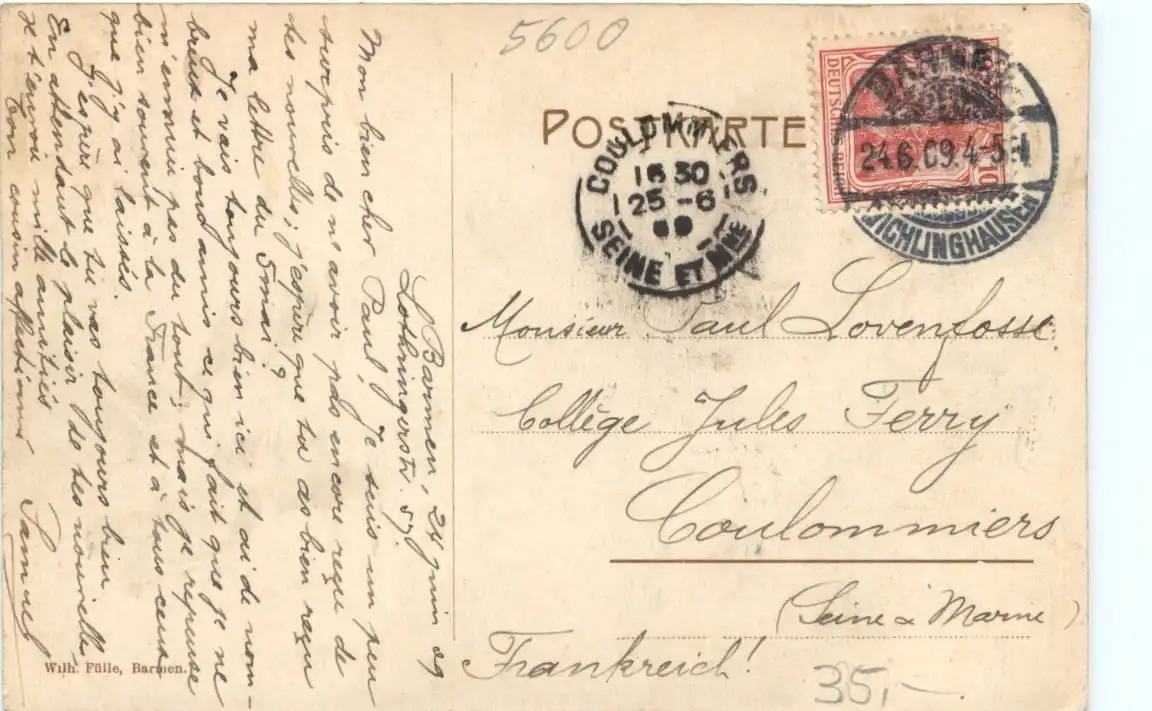 5600
POSTKARTE
DEUTSCHES REICH
10
24.6.09.4-5N
WICHLINGHAUSEN
COULOMMIERS
16 30
25 -6
09
SEINE ET MNE
Monsieur Paul Lovenfosse
Collège Jules Ferry
Coulommiers
(Seine & Marne)
Frankreich!
35,-
Barmen, 24 juin 09
Lothringerstr. 57.
Mon bien cher Paul, Je suis un peu
surpris de n'avoir pas encore reçu de
tes nouvelles; j'espère que tu as bien reçu
ma lettre du 5 mai?
Je vais toujours bien ici et ai de nom-
breux et bons amis ce qui fait que je ne
m'ennuie pas du tout; mais je repense
bien souvent à la France et à tous ceux
que j'y ai laissés.
J'espère que tu vas toujours bien
En attendant le plaisir de tes nouvelles
je t'envoie mille amitiés
Ton cousin affectionné Samuel
Wilh. Fülle, Barmen.